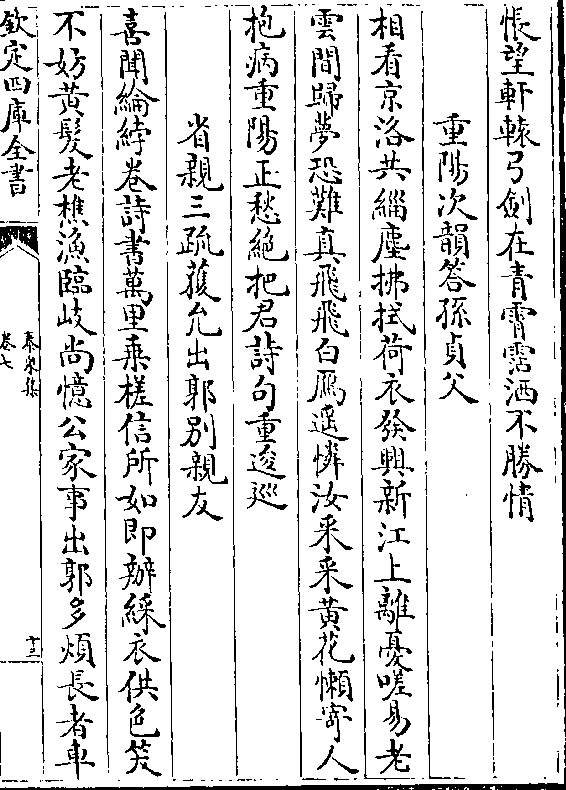 悵望軒轅弓劍在青霄霑洒不勝情
重陽次韻答孫貞父
相看京洛共緇塵拂拭荷衣發興新江上離憂嗟易老
雲間歸夢恐難真飛飛白鴈遥憐汝采采黄花懶寄人
抱病重陽正愁絶把君詩句重逡巡
省親三疏蒙允出郭别親友
喜聞綸綍卷詩書萬里乗槎信所如即辦綵衣供色笑
不妨黄髮老樵漁臨岐尚憶公家事出郭多煩長者車
欽定四庫全書
泰泉集
卷七
十三